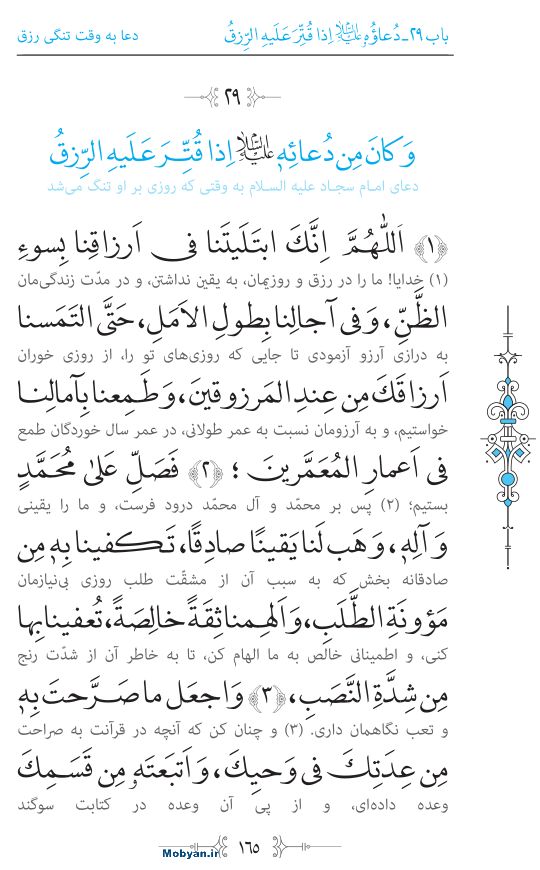 باب ۲۹ـ دُعاؤُهُ عَلَيْهِ السَّلامُ اِذا قُتِّرَ عَلَيهِ الرِّزقُ
دعا به وقت تنگی رزق
۲۹
وَ كانَ مِن دُعائِهٖ عَلَيْهِ السَّلامُ اِذا قُتِّرَ عَلَيهِ الرِّزقُ
دعای امام سجاد علیه السلام به وقتی که روزی بر او تنگ می‌شد
﴿۱﴾ اَللّٰهُمَّ اِنَّكَ ابتَلَيتَنا فى اَرزاقِنا بِسوءِ
(۱) خدایا! ما را در رزق و روزیمان، به یقین نداشتن، و در مدّت زندگی‌مان
الظَّنِّ، وَ فى آجالِنا بِطولِ الاَمَلِ، حَتَّى التَمَسنا
به درازی آرزو آزمودی تا جایی که روزی‌های تو را، از روزی خوران
اَرزاقَكَ مِن عِندِ المَرزوقينَ، وَ طَمِعنا بِآمالِنا
خواستیم، و به آرزومان نسبت به عمر طولانی، در عمر سال خوردگان طمع
فى اَعمارِ المُعَمَّرينَ ؛ ﴿۲﴾ فَصَلِّ عَلىٰ مُحَمَّدٍ
بستیم؛ (۲) پس بر محمّد و آل محمّد درود فرست، و ما را یقینی
وَ آلِهٖ، وَ هَب لَنا يَقينًا صادِقًا، تَكفينا بِهٖ مِن
صادقانه بخش که به سبب آن از مشقّت طلب روزی بی‌نیازمان
مَؤونَةِ الطَّلَبِ، وَ اَلهِمنا ثِقَةً خالِصَةً، تُعفينا بِها
کنی، و اطمینانی خالص به ما الهام کن، تا به خاطر آن از شدّت رنج
مِن شِدَّةِ النَّصَبِ، ﴿۳﴾ وَ اجعَل ما صَرَّحتَ بِهٖ
و تعب نگاهمان داری. (۳) و چنان کن که آنچه در قرآنت به صراحت
مِن عِدَتِكَ فى وَحيِكَ، وَ اَتبَعتَهٗ مِن قَسَمِكَ
وعده داده‌ای، و از پی آن وعده در کتابت سوگند
۱۶۵
Mobyan.ir